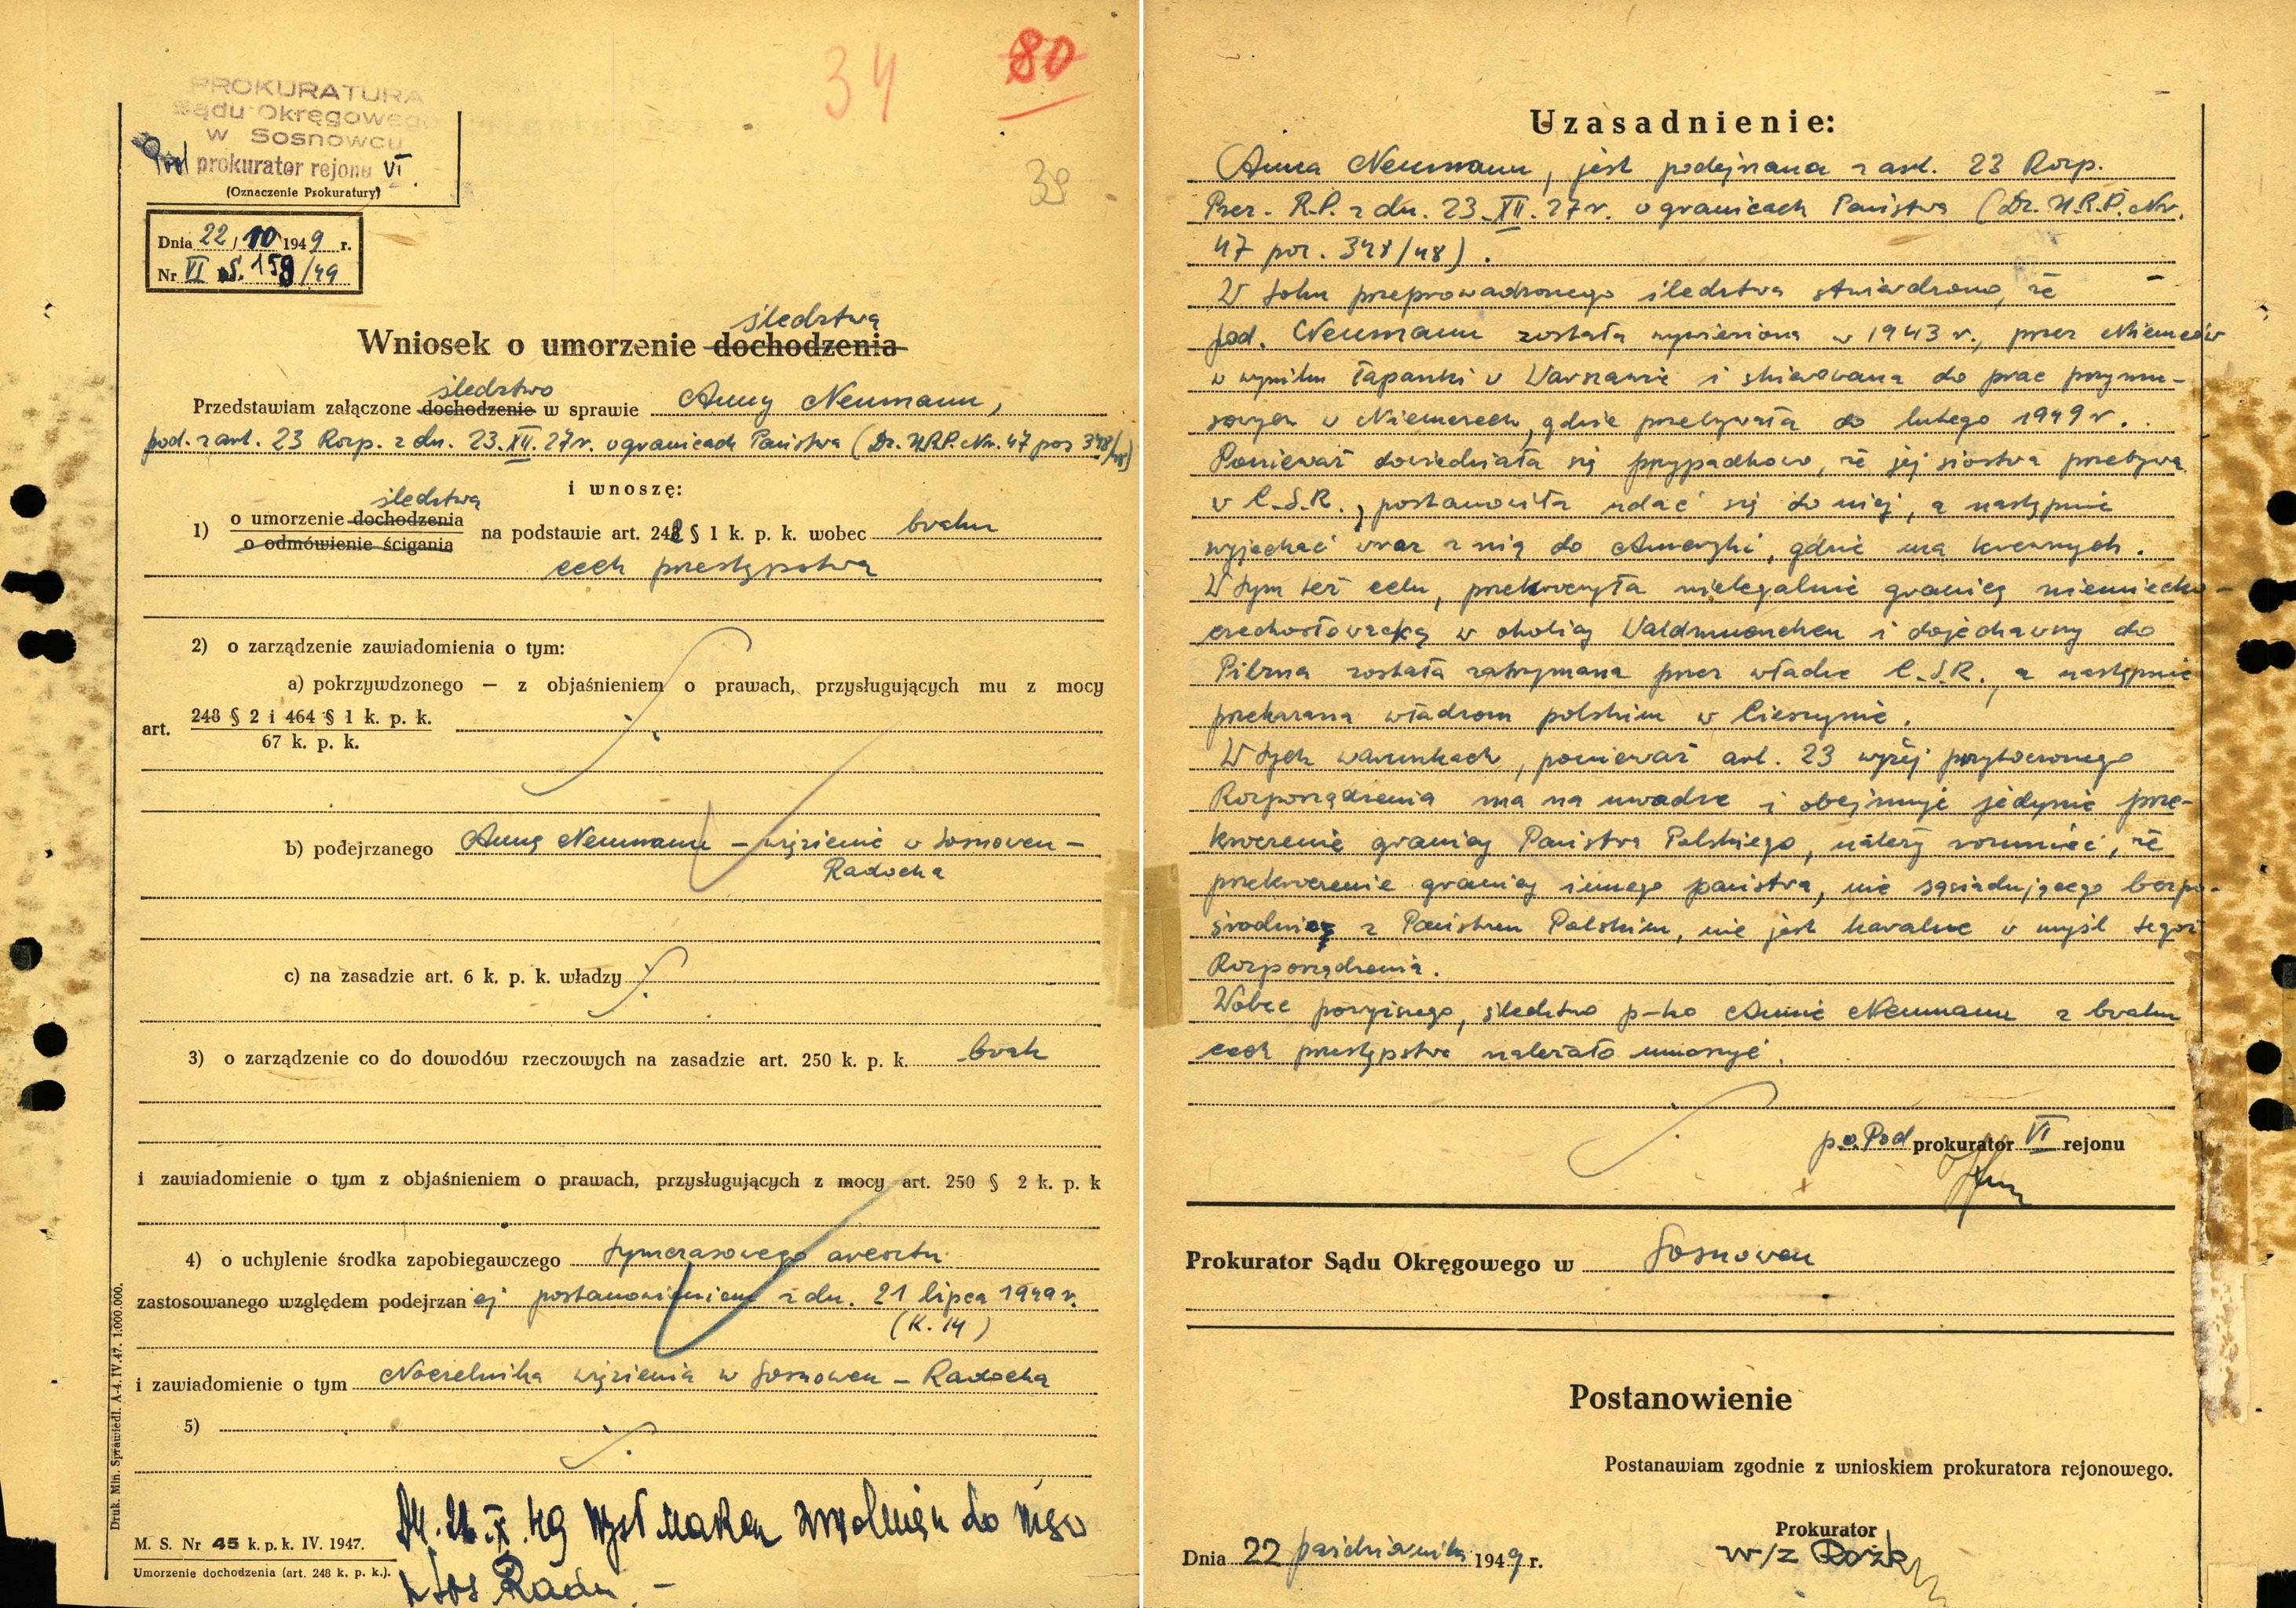 34
80
39
PROKURATURA
Sądu Okręgowego
w Sosnowcu
Pod prokurator rejonu VI.
(Oznaczenie Psokuratury)
Dnia 22/10 1949 r.
Nr VI S. 159/49
śledztwa
Wniosek o umorzenie dochodzenia
śledztwo
Przedstawiam załączone dochodzenie w sprawie Anny Neumann,
pod. z art. 23 Rozp. z dn. 23.XII.27r. o granicach Państwa (Dz. U.R.P. Nr. 47 poz 348/48)
i wnoszę:
śledztwa
1) o umorzenie dochodzenia
o odmówienie ścigania
na podstawie art. 248 § 1 k. p. k. wobec braku
cech przestępstwa
2) o zarządzenie zawiadomienia o tym:
a) pokrzywdzonego — z objaśnieniem o prawach, przysługujących mu z mocy
art. 248 § 2 i 464 § 1 k. p. k.
67 k. p. k.
b) podejrzanego Annę Neumann – więzienie w Sosnowcu –
Radocha
c) na zasadzie art. 6 k. p. k. władzy
3) o zarządzenie co do dowodów rzeczowych na zasadzie art. 250 k. p. k. brak
i zawiadomienie o tym z objaśnieniem o prawach, przysługujących z mocy art. 250 § 2 k. p. k
4) o uchylenie środka zapobiegawczego tymczasowego aresztu
zastosowanego względem podejrzanej postanowieniem z dn. 21 lipca 1949r.
(K. 14)
i zawiadomienie o tym Naczelnika więzienia w Sosnowcu – Radocha
5)
zwolnień do
Radu. –
M. S. Nr 45 k. p. k. IV. 1947.
Umorzenie dochodzenia (art. 248 k. p. k.).
Druk. Min. Sprawiedl. A-4. IV.47. 1.000.000.
Uzasadnienie:
Anna Neumann, jest podejrzana z art. 23 Rozp.
Prez. R.P. z dn. 23.XII.27r. o granicach Państwa (Dz. U.R.P. Nr.
47 poz. 348/48).
W toku przeprowadzonego śledztwa stwierdzono, że
pod. Neumann została wywieziona w 1943 r., przez Niemców
w wyniku łapanki w Warszawie i skierowana do prac przymu-
sowych w Niemczech, gdzie przebywała do lutego 1949 r.
Ponieważ dowiedziała się przypadkowo, że jej siostra przebywa
w C.S.R., postanowiła udać się do niej, a następnie
wyjechać wraz z nią do Ameryki, gdzie ma krewnych.
W tym też celu, przekroczyła nielegalnie granicę niemiecko-
czechosłowacką w okolicy Waldmuenchen i dojechawszy do
Pilzna została zatrzymana przez władze C.S.R., a następnie
przekazana władzom polskim w Cieszynie.
W tych warunkach, ponieważ art. 23 wyżej przytoczonego
Rozporządzenia ma na uwadze i obejmuje jedynie prze-
kroczenie granicy Państwa Polskiego, należy rozumieć, że
przekroczenie granicy innego państwa, nie sąsiadującego bezpo-
średnio z Państwem Polskim, nie jest karalne w myśl tegoż
Rozporządzenia.
Wobec powyższego, śledztwo p-ko Annie Neumann z braku
cech przestępstwa należało umorzyć.
p.o. Pod prokurator VI rejonu
Prokurator Sądu Okręgowego w Sosnowcu
Postanowienie
Postanawiam zgodnie z wnioskiem prokuratora rejonowego.
Prokurator
w/z
Dnia 22 października 1949 r.